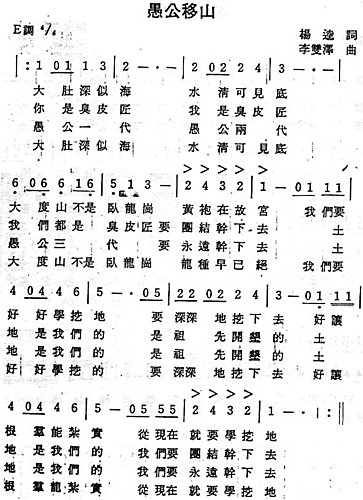 愚公移山
E調 4/4
楊逵 詞
李雙澤 曲
|: 1 01 1 3 | 2 - - - | 2 02 2 4 | 3 - - - |
大肚深似海 水清可見底
你是臭皮匠 我是臭皮匠
愚公一代 愚公兩代
大肚深似海 水清可見底
6 06 6 16 | 5 1 3 - | 2 4 3 2 | 1 - 01 11 |
大度山不是臥龍崗 黃袍在故宮 我們要
我們都是臭皮匠要團結幹下去 土
愚公三代 要永遠幹下去 土
大度山不是臥龍崗 龍種早已絕 我們要
4 04 4 6 | 5 - - 05 | 22 02 2 4 | 3 - 01 11 |
好好學挖地 要深深地挖下去 好讓
地是我們的 是祖先開墾的 土
地是我們的 是祖先開墾的 土
好好學挖地 要深深地挖下去 好讓
4 04 4 6 | 5 - 05 55 | 2 4 3 2 | 1 - - :||
根羣能紮實 從現在就要學挖地
地是我們的 我們要團結幹下去
地是我們的 我們要永遠幹下去
根羣能紮實 從現在就要學挖地